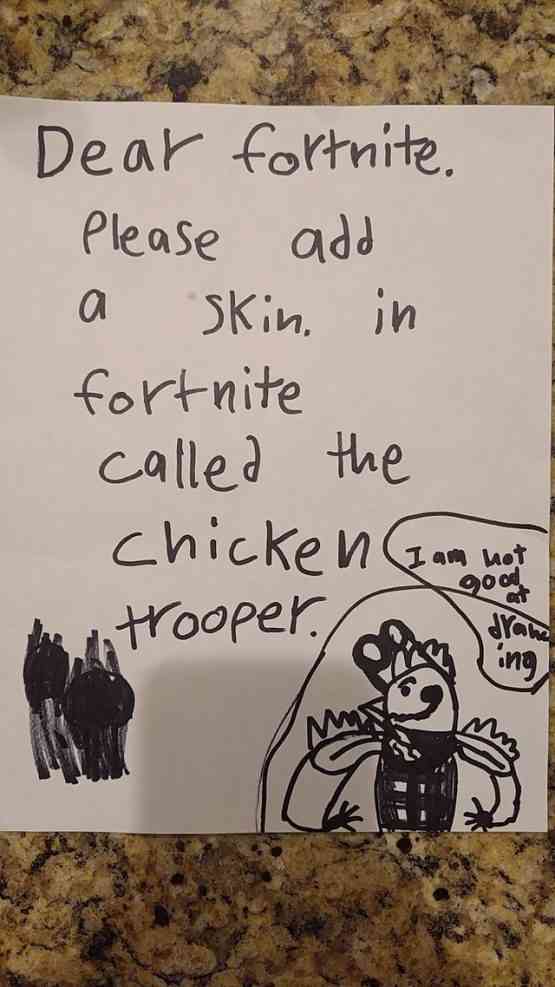 Dear fortnite.
Please add
a skin. in
fortnite
called the
chicken
trooper.
I am not
good
at
drawing
ing